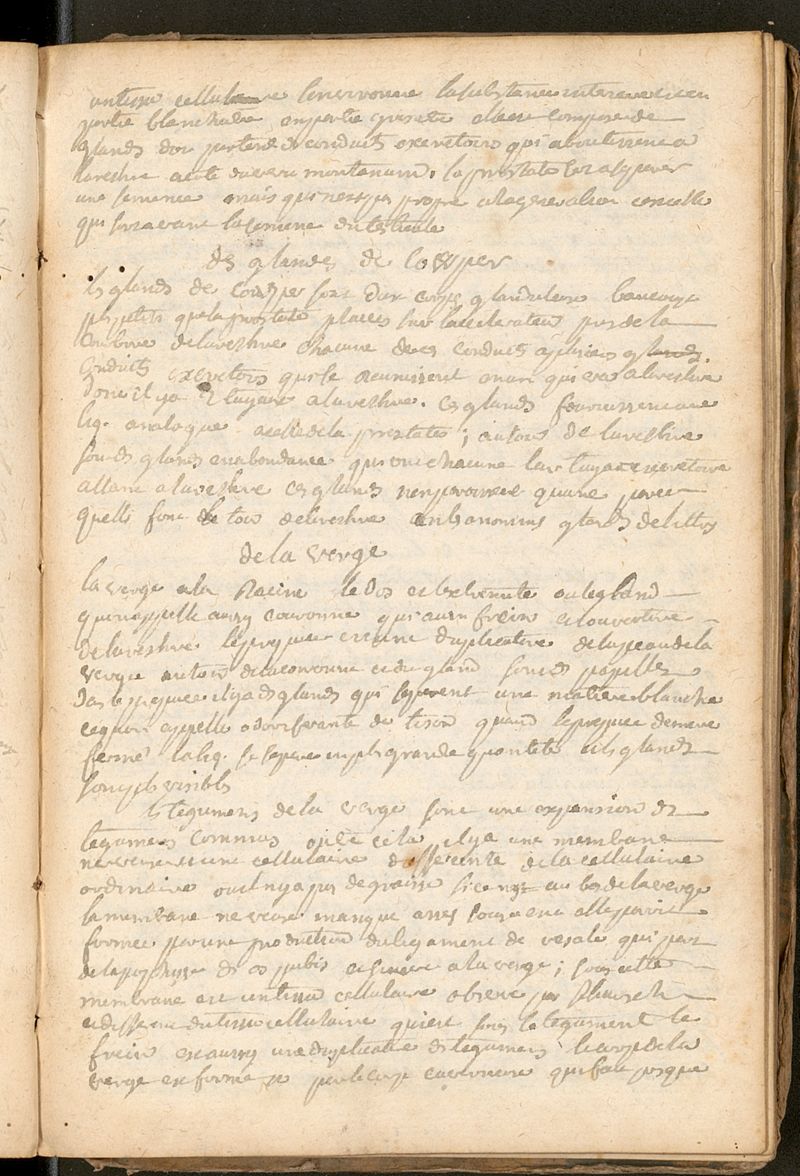 un tissu cellulaire l'environne la substance interieure est en
partie blanchatre en partie grisatre elle est composee de
glands d'ou partent ds conduits excretoirs qui aboutissent a
luresthre a coté du veru montanum. la prostate sert a separer
une semence mais qui n'est pas propre a la generation
qui sort avant la semene du testicule
des glandes de Cowper
ls glands de Cowper sont deux corps glanduleux beaucoup
plus petits que la prostate places sur laccelerateur pres de la
courbure deluresthre chacune de ces conduits a plusieurs glands.
conduits excretoirs qui se reunissent en un qui va a luresthre
donc il y a 2 tuyaux a luresthre. ces glands fournissent une
liq. analogue a celle de la prostate; autour de luresthre
sont ds glands en abondance qui ont chacune leur tuyau excretoire
allant a luresthre ces glands
quelles font le tour deluresthre glands de littre
de la verge
la verge a la Racine le dos et lextremité ou le gland
quon appelle aussy couronne qui a un frein et louverture
de luresthre le prepuce est une duplicature de la peau de la
verge autour de la couronne et du gland sont ds papilles
Dans le prepuce il y a ds glands qui separent une matiere blanche
ce quon appelle odoriferante de tison quand le prepuce demeure
fermé la liq. se separe en plus grande quantité et ls glands
sont plus visibls
ls tegumens de la verge sont une expansion ds
tegumens communs outre cela il y a une membrane
nerveuse et une cellulaire differente de la cellulaire
ordinaire ou il n'y a pas de graisse si ce nest au bas de la verge
la membrane nerveuse manque elle paroit
formée par une production du ligament de vesale qui part
de la du os pubis et sinsere a la verge; sous cette
membrane est un tissu cellulaire observé par Rhuisch
et dessous du tissu cellulaire qui est sous le tegument le
frein est aussy une duplicature ds tegumens le corps de la
verge est formé par le corps caverneux qui fait presque